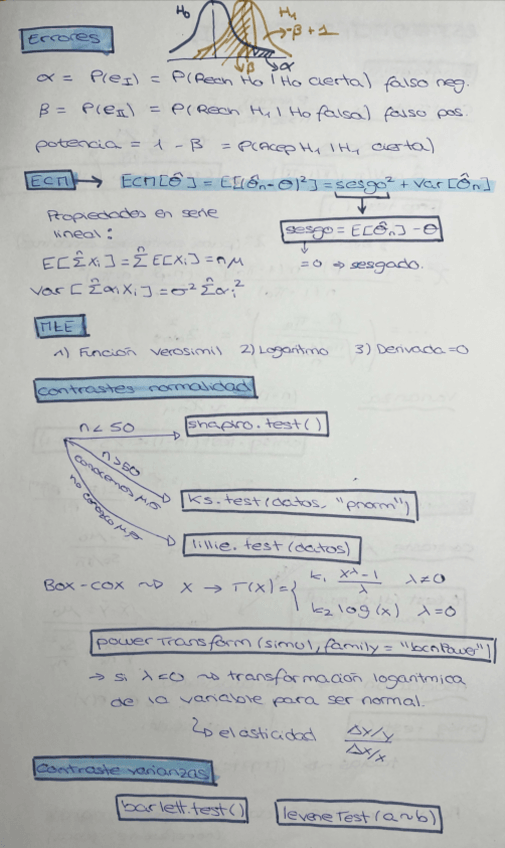 H₀ H₁
-β+1
Errores
β α
α = P(e_I) = P(Rech H₀ | H₀ cierta) falso neg.
β = P(e_II) = P(Rech H₁ | H₀ falsa) falso pos.
potencia = 1 - β = P(Acep H₁ | H₁ cierta)
ECM → ECM[θ̂] = E[(θ̂n - θ)²] = sesgo² + Var[θ̂n]
Propiedades en serie
lineal:
sesgo = E[θ̂n] - θ
E[Σⁿ Xi] = Σⁿ E[Xi] = nμ
= 0 ⇒ sesgado.
Var[Σⁿ αi Xi] = σ² Σⁿ αi²
MLE
1) Función verosimil 2) Logaritmo 3) Derivada = 0
Contrastes normalidad
n < 50
shapiro.test()
n > 50
conocemos μ,σ
ks.test(datos, "pnorm")
no conozco μ,σ
lillie.test(datos)
BOX-COX ~> X → T(X) = { k₁ (x^λ - 1)/λ λ ≠ 0
k₂ log(x) λ = 0
powerTransform(simul, family = "bcnPower")
→ si λ = 0 ~> transformación logarítmica
de la variable para ser normal.
↳ elasticidad (Δy/y)/(Δx/x)
Contraste varianzas
barlett.test() leveneTest(a~b)